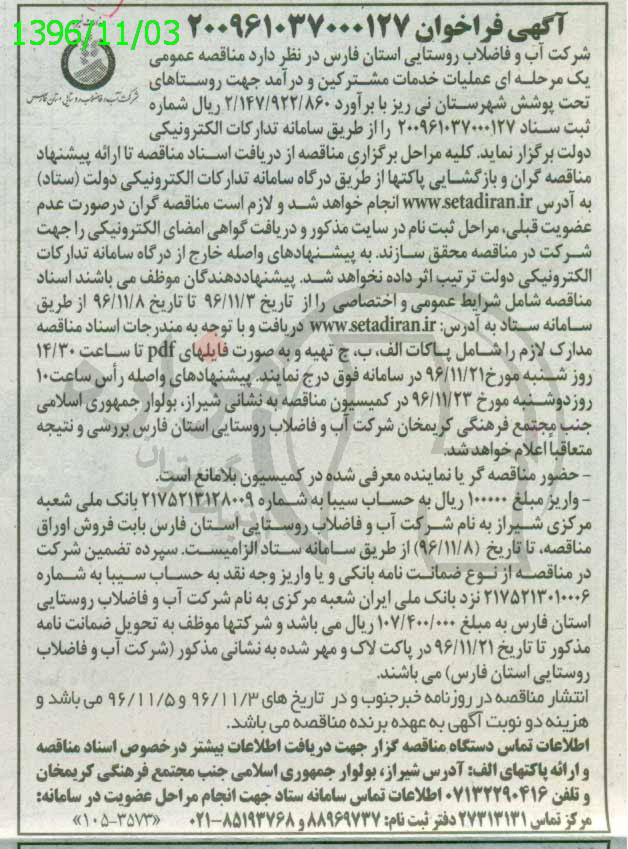 1396/11/03
آگهی فراخوان ۲۰۰۹۶۱۰۳۷۰۰۰۱۲۷
شرکت آب و فاضلاب روستایی استان فارس در نظر دارد مناقصه عمومی
یک مرحله ای عملیات خدمات مشترکین و درآمد جهت روستاهای
تحت پوشش شهرستان نی ریز با برآورد ۲/۱۴۷/۹۲۲/۸۶۰ ریال شماره
ثبت ستاد ۲۰۰۹۶۱۰۳۷۰۰۰۱۲۷ را از طریق سامانه تدارکات الکترونیکی
شرکت آب و فاضلاب روستایی استان فارس
دولت برگزار نماید. کلیه مراحل برگزاری مناقصه از دریافت اسناد مناقصه تا ارائه پیشنهاد
مناقصه گران و بازگشایی پاکتها از طریق درگاه سامانه تدارکات الکترونیکی دولت (ستاد)
به آدرس www.setadiran.ir انجام خواهد شد و لازم است مناقصه گران درصورت عدم
عضویت قبلی، مراحل ثبت نام در سایت مذکور و دریافت گواهی امضای الکترونیکی را جهت
شرکت در مناقصه محقق سازند. به پیشنهادهای واصله خارج از درگاه سامانه تدارکات
الکترونیکی دولت ترتیب اثر داده نخواهد شد. پیشنهاددهندگان موظف می باشند اسناد
مناقصه شامل شرایط عمومی و اختصاصی را از تاریخ ۹۶/۱۱/۳ تا تاریخ ۹۶/۱۱/۸ از طریق
سامانه ستاد به آدرس: www.setadiran.ir دریافت و با توجه به مندرجات اسناد مناقصه
مدارک لازم را شامل پاکات الف، ب، ج تهیه و به صورت فایلهای pdf تا ساعت ۱۴/۳۰
روز شنبه مورخ ۹۶/۱۱/۲۱ در سامانه فوق درج نمایند. پیشنهادهای واصله رأس ساعت ۱۰
روز دوشنبه مورخ ۹۶/۱۱/۲۳ در کمیسیون مناقصه به نشانی شیراز، بولوار جمهوری اسلامی
جنب مجتمع فرهنگی کریمخان شرکت آب و فاضلاب روستایی استان فارس بررسی و نتیجه
متعاقباً اعلام خواهد شد.
- حضور مناقصه گر یا نماینده معرفی شده در کمیسیون بلامانع است.
- واریز مبلغ ۱۰۰۰۰۰ ریال به حساب سیبا به شماره ۲۱۷۵۲۱۳۱۲۸۰۰۹ بانک ملی شعبه
مرکزی شیراز به نام شرکت آب و فاضلاب روستایی استان فارس بابت فروش اوراق
مناقصه، تا تاریخ (۹۶/۱۱/۸) از طریق سامانه ستاد الزامیست. سپرده تضمین شرکت
در مناقصه از نوع ضمانت نامه بانکی و یا واریز وجه نقد به حساب سیبا به شماره
۲۱۷۵۲۱۳۰۱۰۰۰۶ نزد بانک ملی ایران شعبه مرکزی به نام شرکت آب و فاضلاب روستایی
استان فارس به مبلغ ۱۰۷/۴۰۰/۰۰۰ ریال می باشد و شرکتها موظف به تحویل ضمانت نامه
مذکور تا تاریخ ۹۶/۱۱/۲۱ در پاکت لاک و مهر شده به نشانی مذکور (شرکت آب و فاضلاب
روستایی استان فارس) می باشند.
انتشار مناقصه در روزنامه خبرجنوب و در تاریخ های ۹۶/۱۱/۳ و ۹۶/۱۱/۵ می باشد و
هزینه دو نوبت آگهی به عهده برنده مناقصه می باشد.
اطلاعات تماس دستگاه مناقصه گزار جهت دریافت اطلاعات بیشتر درخصوص اسناد مناقصه
و ارائه پاکتهای الف: آدرس شیراز، بولوار جمهوری اسلامی جنب مجتمع فرهنگی کریمخان
و تلفن ۰۷۱۳۲۲۹۰۴۱۶ اطلاعات تماس سامانه ستاد جهت انجام مراحل عضویت در سامانه:
مرکز تماس ۲۷۳۱۳۱۳۱ دفتر ثبت نام: ۸۸۹۶۹۷۳۷ و ۸۵۱۹۳۷۶۸-۰۲۱ «۱۰۵-۳۵۷۳»